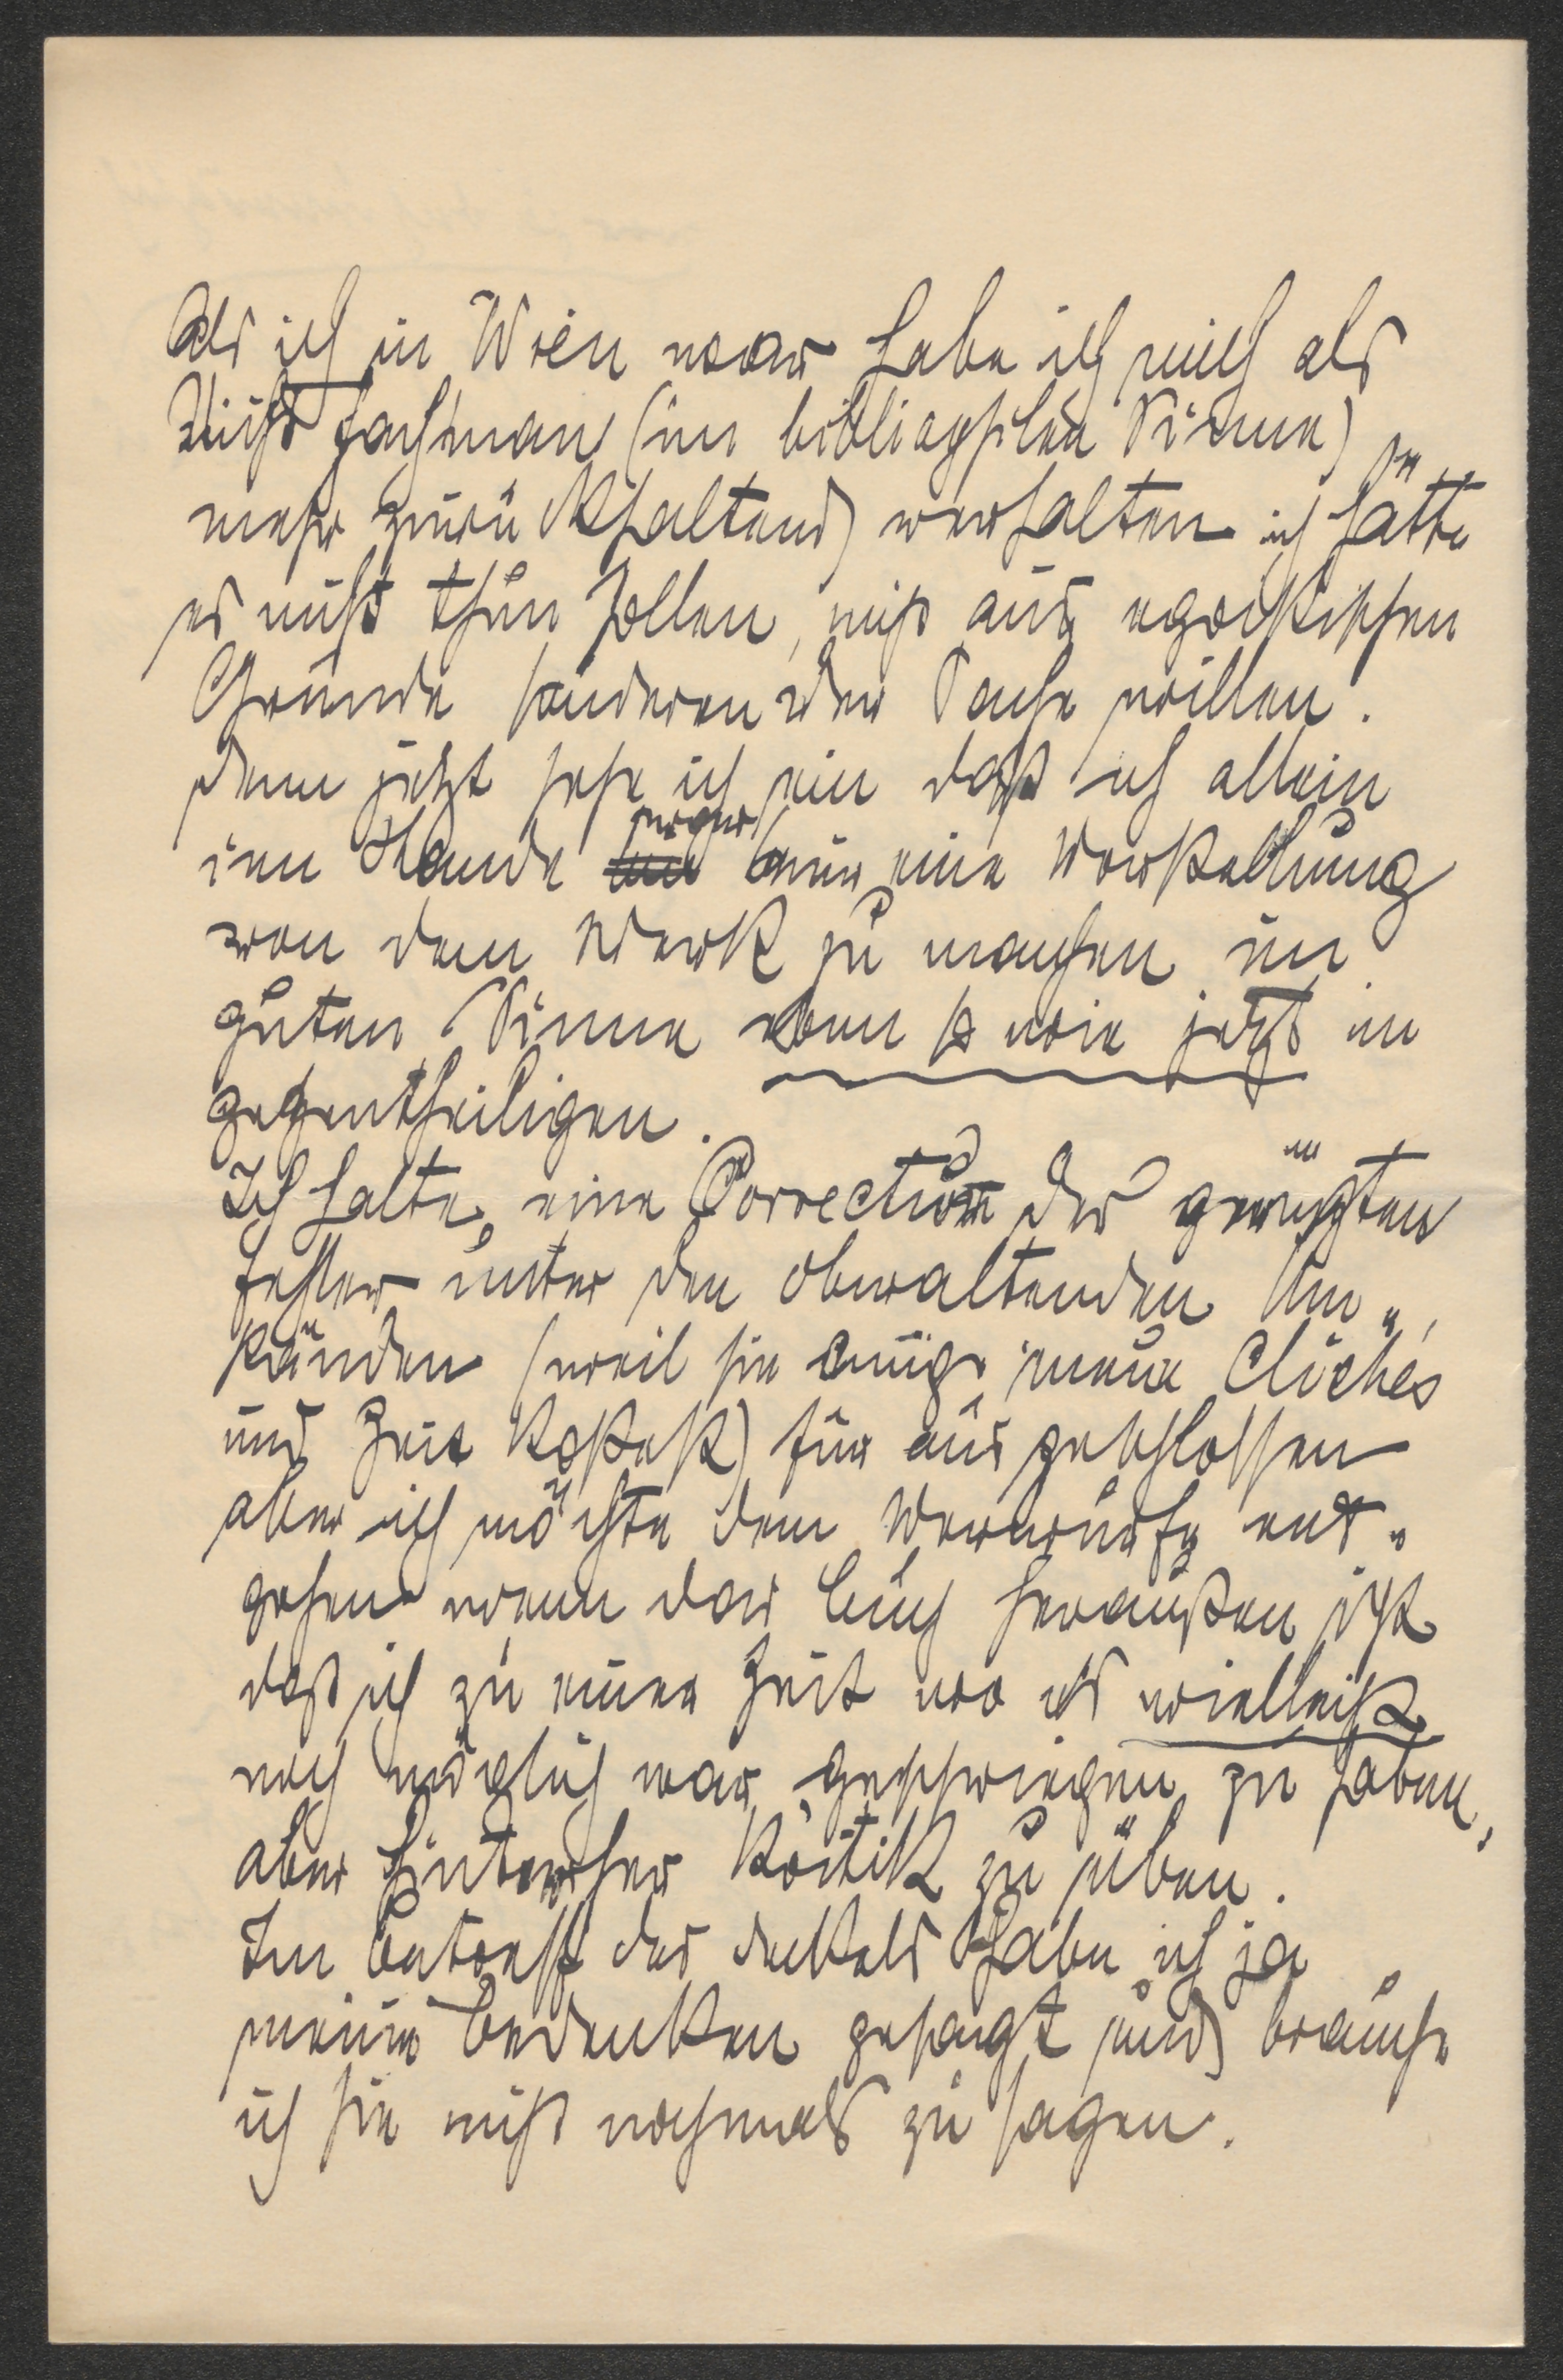 Als ich in Wien war habe ich mich als
Nicht fachman (im bibliophilen Sinne)
mehr zurükhaltend verhalten ich hätte
es nicht thun sollen, nicht aus egoistischen
Gründe sonderen der Sache willen.
denn jetzt sehe ich ein daß ich allein
im Stande war mir eine Vorstellung
von dem Werk zu machen im
guten Sinne eben so wie jetzt im
gegentheiligen.
Ich halte, eine Correctur der gerügten
fehler unter den obwaltenden Um„
ständen (weil sie einige neue Clichés
und Zeit kostet) für ausgeschlossen
aber ich möchte dem Vorwurfe ent„
gehen wenn das buch heraußen ist
daß ich zu einer Zeit wo es vielleicht
noch möglich war geschwiegen zu haben,
aber hinterher Kritik zu üben.
Im betreff des dekels habe ich ja
meine bedenken gesagt und brauche
ich sie nicht nochmals zu sagen.